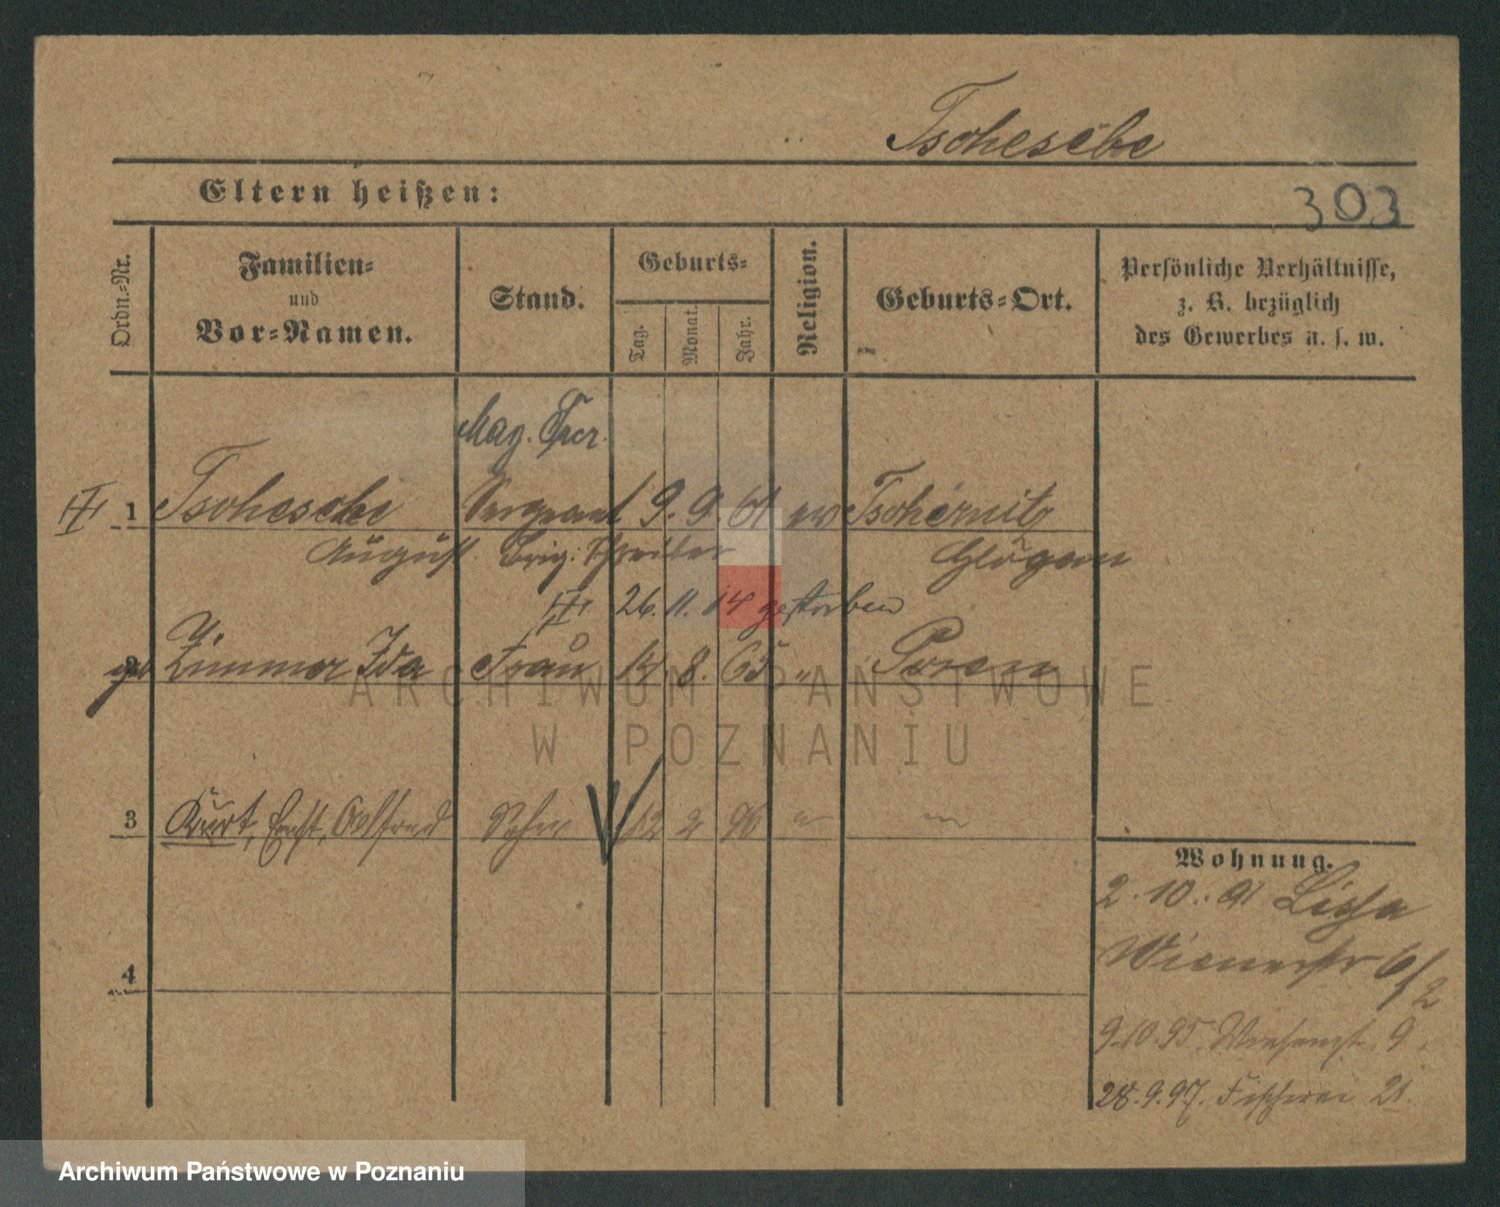 Tschesche
Eltern heißen:
303
Ordn.-Nr.
Familien-
und
Vor-Namen.
Stand.
Geburts-
Tag.
Monat.
Jahr.
Religion.
Geburts-Ort.
Persönliche Verhältnisse,
z. B. bezüglich
des Gewerbes u. s. w.
Mag.
1 Tschesche Sergeant 9. 9. 61 ev Tschernitz
August Brig. Schreiber Glogau
26. 11. 14 gestorben
2 Zimmer Ida Frau 8. 65 " Posen
ARCHIWUM PAŃSTWOWE
W POZNANIU
3 Kurt, Ernst, Alfred Sohn 12 2 96 "
Wohnung.
2. 10. 91 Lissa
Wienerstr 6/2
4
9.10.95. 9.
28.9.97. Fischerei 21.
Archiwum Państwowe w Poznaniu